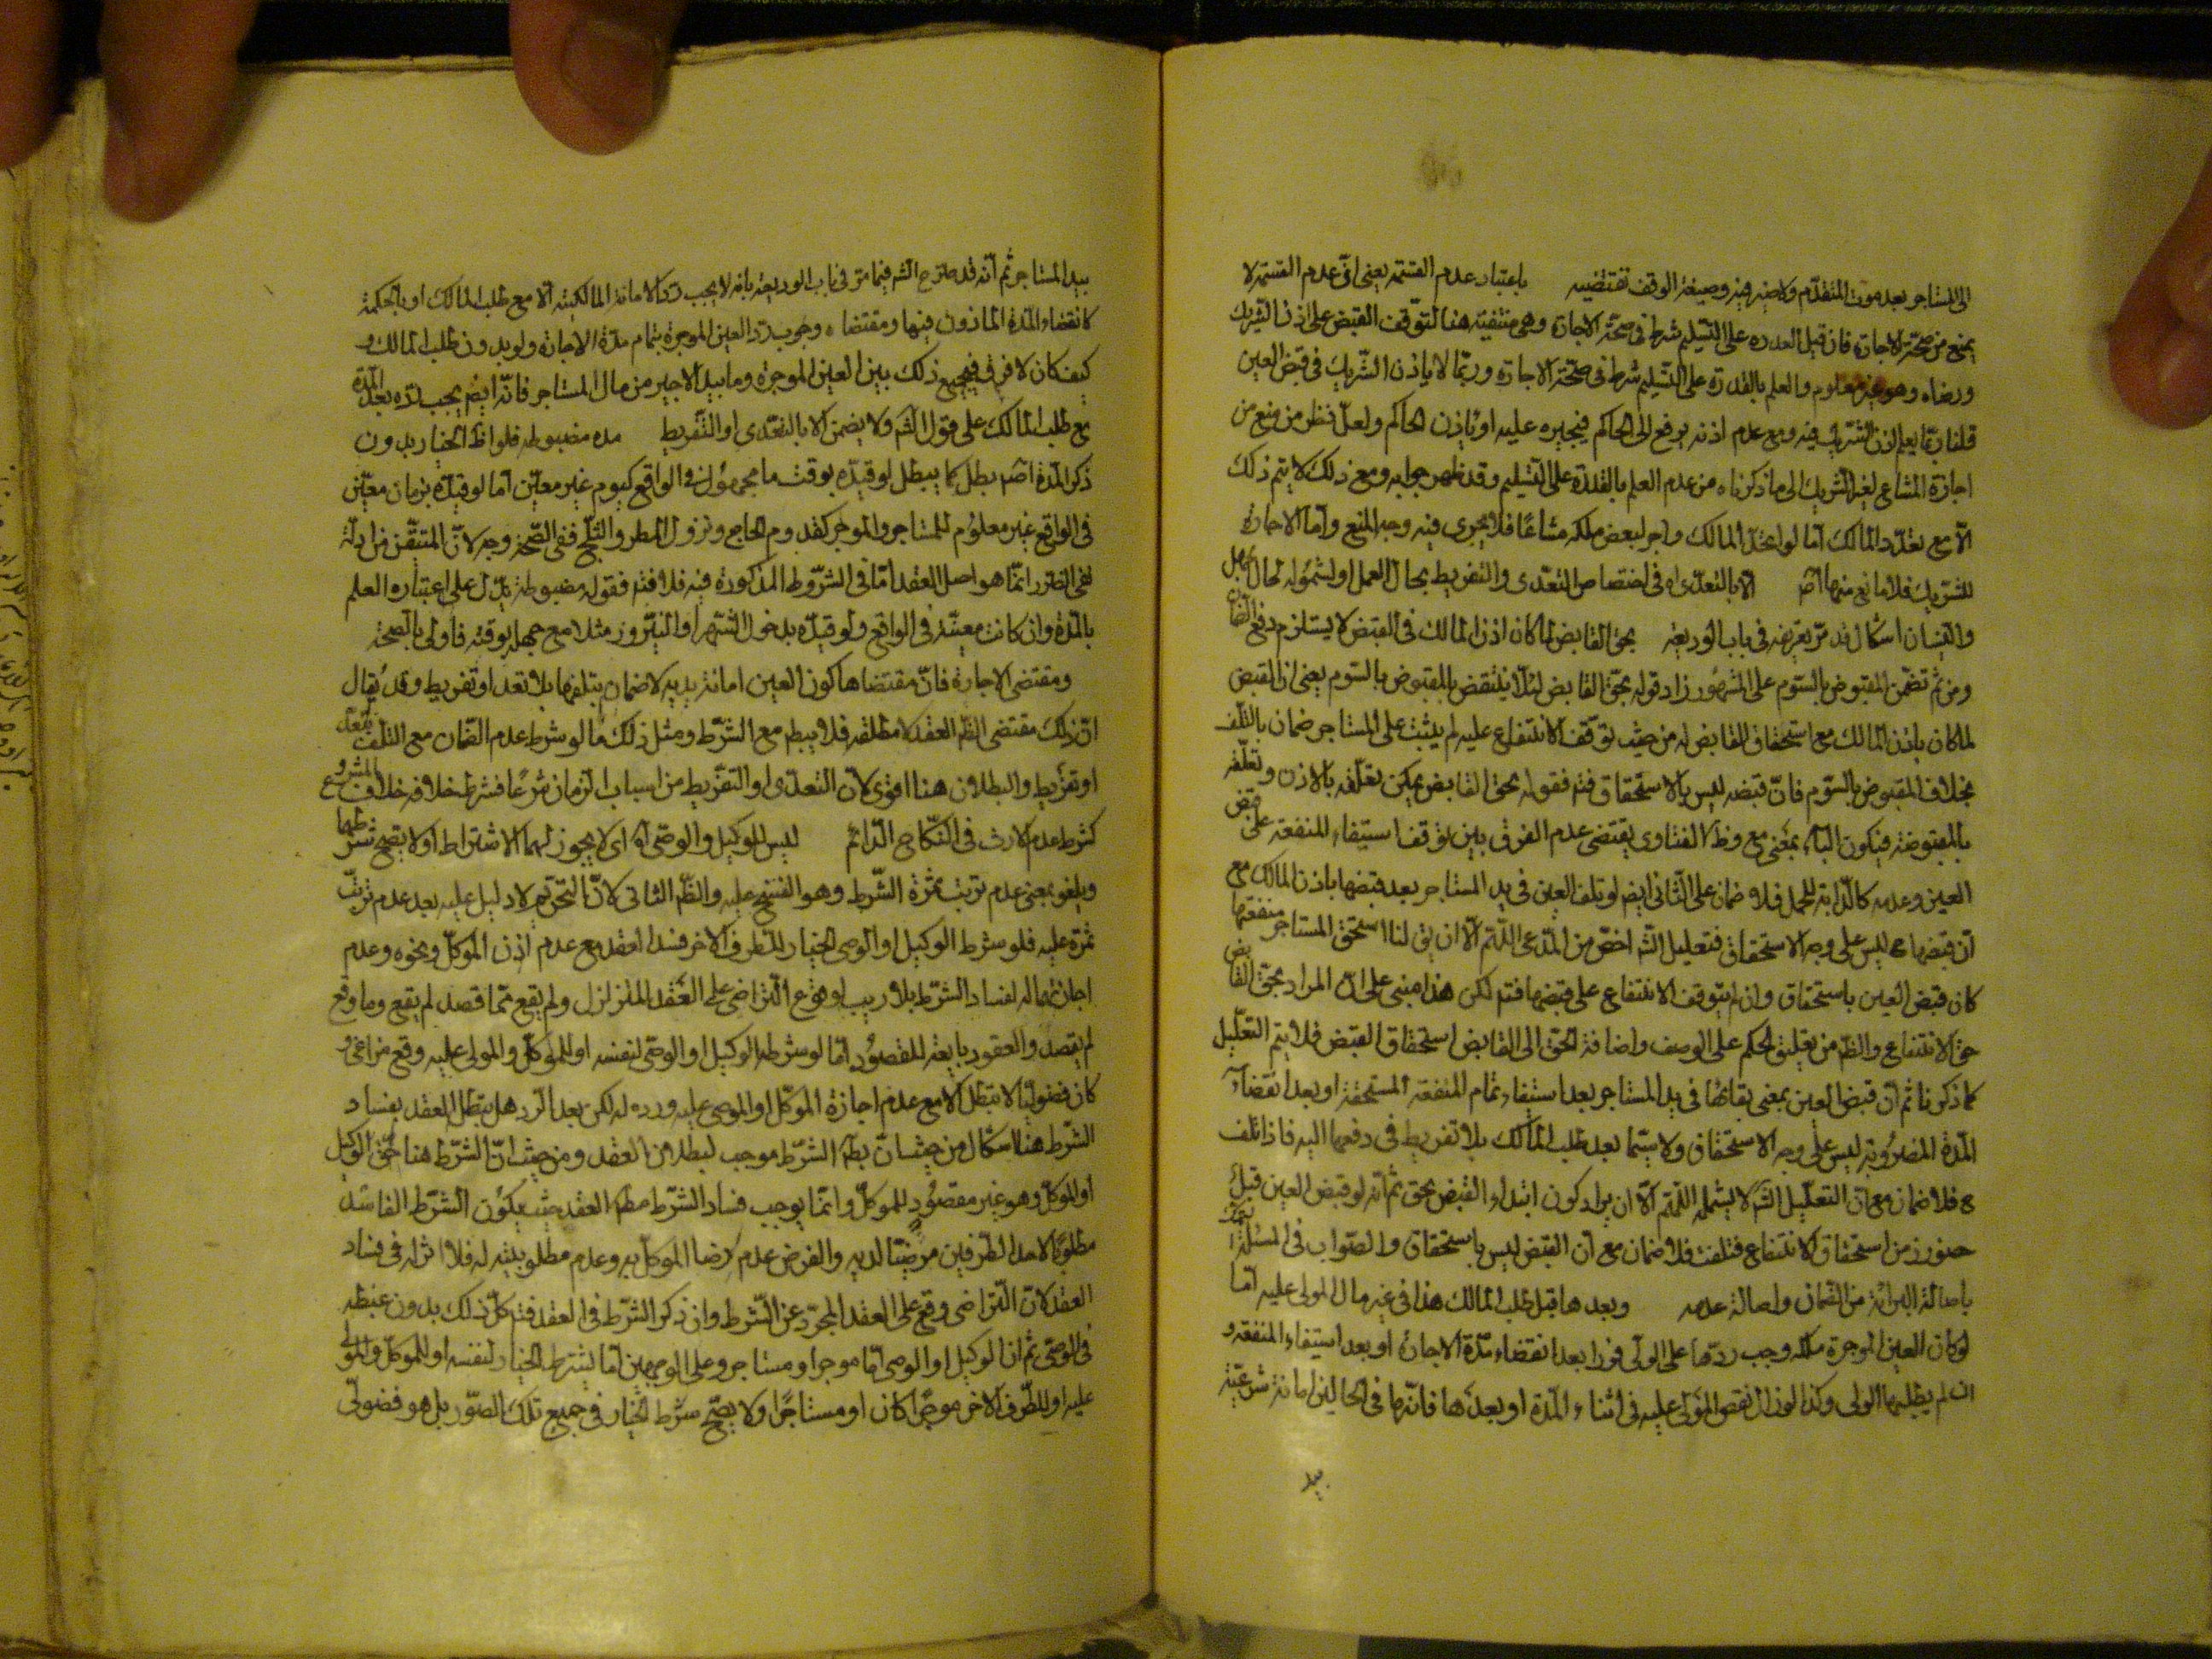 الى المستاجر بعد موت المتقدّم ولاصيه فيه وصيغة الوقف تقتضيه باعتبار عدم القسمة يعنى انّ عدم القسمة لا
يمنع من صحّة الاجارة فان قيل القدرة على التسليم شرط فى صحّة الاجارة وهى منتفية هنا لتوقّف القبض على اذن الشريك
ورضاه وهو غير معلوم والعلم بالقدرة على التسليم شرط فى صحّة الاجارة وربّما لا ياذن الشّريك فى قبض العين
قلنا ربّما يعلم اذن الشّريك فيه ومع عدم اذنه يرفع الى الحاكم فيجبره عليه او ياذن الحاكم ولعلّ نظر من منع من
اجارة المشاع لغير الشّريك الى ما ذكرناه من عدم العلم بالقدرة على التّسليم وقد ظهر جوابه ومع ذلك لا يتم ذلك
الّا مع تعدّد المالك امّا لو اتّحد المالك واجر لبعض ملكه مشاعًا فلا يجرى فيه وجه المنع وامّا الاجارة
للشّريك فلا مانع منها اصلا الّا بالتعدّى اه فى اختصاص التعدّى والتفريط بحال العمل او لشموله لحال الجهل
والنّسيان اشكال قد مرّ تعريفه فى باب الوديعة بحق القابض لما كان اذن المالك فى القبض لا يستلزم رفع الضّمان
ومن ثمّ تضمّن المقبوض بالسّوم على المشهور زاد قوله بحقّ القابض لئلّا ينتقض بالمقبوض بالسّوم يعنى ان القبض
لما كان باذن المالك مع استحقاق القابض له من حيث توقّف الانتفاع عليه لم يثبت على المستاجر ضمان بالتّلف
بخلاف المقبوض بالسّوم فانّ قبضه ليس بالاستحقاق فتم فقوله بحق القابض يمكن تعلّقه بالاذن وتعلّقه
بالمقبوضة فيكون الباء بمعنى مع وظ الفتاوى يقتضى عدم الفرق بين توقف استيفاء المنفعة على قبض
العين وعدمه كالدّابّة للحمل فلا ضمان على الثّانى ايضا لو تلف العين فى يد المستاجر بعد قبضها باذن المالك مع
انّ قبضها ح ليس على وجه الاستحقاق فتعليل الشّه اخصّ من المدّعى اللّهمّ الّا ان يق لنا استحقّ المستاجر منفعتها
كان قبض العين باستحقاق وان لم يتوقف الانتفاع على قبضها فتم لكن هذا مبنى على انّ المراد بحقّ القابض
حق الانتفاع والظّ من تعليق الحكم على الوصف واضافة الحقّ الى القابض استحقاق القبض فلا يتم التعليل
كما ذكرنا ثم انّ قبض العين بمعنى بقائها فى يد المستاجر بعد استيفاء تمام المنفعة المستحقة او بعد انقضاء
المدّة المضروبة ليس على وجه الاستحقاق ولا سيّما بعد طلب المالك بلا تفريط فى دفعها اليه فاذا تلف
ح فلا ضمان مع انّ التعليل الشّه لا يشمله اللّهمّ الّا ان يراد كون ابتداء القبض بحق ثم انّه لو قبض العين قبل
حضور زمن استحقاق الانتفاع فتلفت فلا ضمان مع انّ القبض ليس باستحقاق والصّواب فى المسئلة التمسّك
باصالة البرائة من الضّمان واصالة عدمه وبعدها قبل طلب المالك هذا فى غير مال المولى عليه امّا
لو كان العين الموجرة ملكه وجب ردّها على الولّى فورا بعد انقضاء مدّة الاجارة او بعد استيفاء المنفعة و
ان لم يطلبها الولى وكذا لو زال نقص المولّى عليه فى اثناء المدّة او بعدها فانّها فى الحالين امانة شرعيّة
بيد
بيد المستاجر ثمّ انّه قد صرّح الشّه فيما مرّ فى باب الوديعة بانه لا يجب ردّ الامانة المالكيّة الّا مع طلب المالك او بالحكمة
كانقضاء المدّة الماذون فيها ومقتضاه وجوب ردّ العين الموجرة بتمام مدّة الاجارة ولو بدون طلب المالك و
كيف كان لا فرق فى جميع ذلك بين العين الموجرة وما بيد الاجير من مال المستاجر فانّه ايضا يجب ردّه بعد المدّة
مع طلب المالك على قول الشّه ولا يضمن الا بالتعدّى او التّفريط مدّه مضبوطه فلو اطّ الخيار بدون
ذكر المدّة اصلا بطل كما يبطل لو قيّده بوقت ما مجهول فى الواقع كيوم غير معيّن امّا لو قيّده بزمان معيّن
فى الواقع غير معلوم للمستاجر والموجر كقدوم الحاج ونزول المطر والثّلج ففى الصّحة وجه لانّ المتيقّن من ادلّة
نفى الغرر انّما هو اصل العقد امّا فى الشّروط المذكورة فيه فلا فتم فقوله مضبوطة يدّل على اعتباره العلم
بالمدّة وان كانت معيّنة فى الواقع ولو قيّده بدخول الشّهر او النّيروز مثلا مع جهله بوقته فاولى بالصحّة
ومقتضى الاجارة فانّ مقتضاها كون العين امانة بيديه لا ضمان بتلفها بلا تعد او تفريط وقد يقال
انّ ذلك مقتضى اطّ العقد لا مطلقه فلا يبط مع الشّرط ومثل ذلك ما لو شرط عدم الضّمان مع التلف بتعدّ
او تفريط والبطلان هنا اقوى لانّ التعدّى او التفّريط من اسباب الزمان شرعًا فشرط خلافه خلاف المشروع
كشرط عدم الارث فى النّكاح الدّائم ليس للوكيل والوصّى اه اى لا يجوز لهما الاشتراط او لا يصح شرطهما
ويلغو بمعنى عدم ترتب ثمرة الشّرط وهو المتّجه عليه والظّ الثانى لانّ التّحريم لا دليل عليه بعد عدم ترتّب
ثمرة عليه فلو شرط الوكيل او الوصى الخيار للطرف الاخر فسد العقد مع عدم اذن الموكّل ونحوه وعدم
اجازتهما له لفساد الشّرط بلا ريب او وقوع التّراضى على العقد المتزلزل ولم يقع فما قصد لم يقع وما وقع
لم يقصد والعقود تابعة للقصود امّا لو شرطه الوكيل او الوصّى لنفسه او للموكّل والمولى عليه وقع مراعى و
كان فضوليّا لا تبطل الا مع عدم اجازة الموكّل او الموصى عليه ورده له لكن بعد الردّ هل يبطل العقد بفساد
الشّرط هنا اشكال من حيث انّ بطّ الشّرط موجب لبطلان العقد ومن حيث انّ الشّرط هنا حقّ الوكيل
او الموكّل وهو غير مقصود للموكّل وانّما يوجب فساد الشّرط مطّ العقد حيث يكون الشّرط الفاسد
مطلوبًا لاحد الطّرفين مرضيّا لديه والفرض عدم رضا الموكّل به وعدم مطلوبيّته له فلا اثر له فى فساد
العقد لانّ التّراضى وقع على العقد المجرّد عن الشّرط وان ذكر الشّرط فى العقد فتم كلّ ذلك بدون غبطه
فى الوصّى ثم ان الوكيل او الوصى امّا موجر او مستاجر وعلى الوجهين امّا يشترط الخيار لنفسه او للموكّل والمولى
عليه او للطّرف الاخر موجرًا كان او مستاجرًا ولا يصّح شرط الخيار فى جميع تلك الصّور بل هو فضولّى